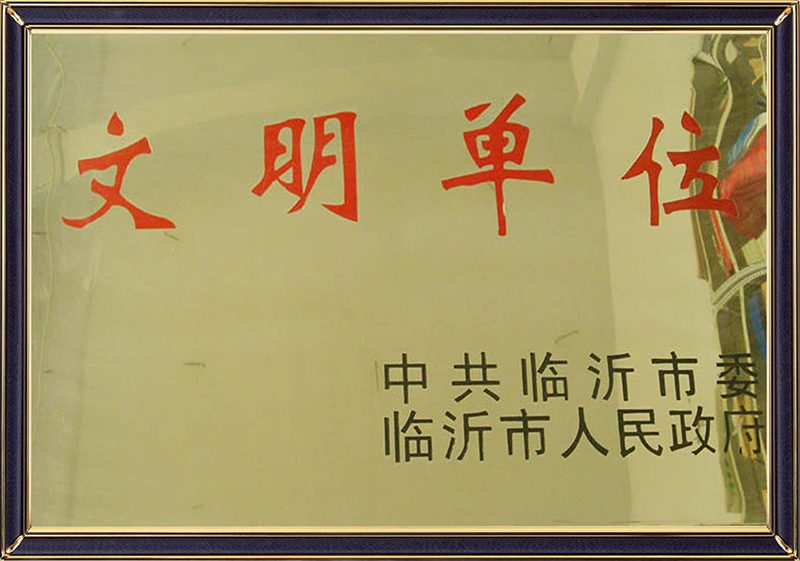 文明单位
中共临沂市委
临沂市人民政府